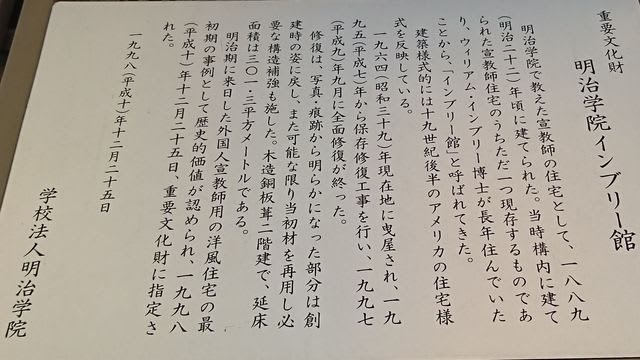 重要文化財
明治学院インブリー館
明治学院で教えた宣教師の住宅として、一八八九
(明治二十二)年頃に建てられた。当時構内に建て
られた宣教師住宅のうちただ一つ現存するものであ
り、ウィリアム・インブリー博士が長年住んでいた
ことから、「インブリー館」と呼ばれてきた。
建築様式的には十九世紀後半のアメリカの住宅様
式を反映している。
一九六四(昭和三十九)年現在地に曳屋され、一九
九五(平成七)年から保存修復工事を行い、一九九七
(平成九)年九月に全面修復が終った。
修復は、写真・痕跡から明らかになった部分は創
建時の姿に戻し、また可能な限り当初材を再用し必
要な構造補強も施した。木造銅板葺二階建で、延床
面積は三〇一・三平方メートルである。
明治期に来日した外国人宣教師用の洋風住宅の最
初期の事例として歴史的価値が認められ、一九九八
(平成十)年十二月二十五日、重要文化財に指定さ
れた。
一九九八(平成十)年十二月二十五日
学校法人明治学院